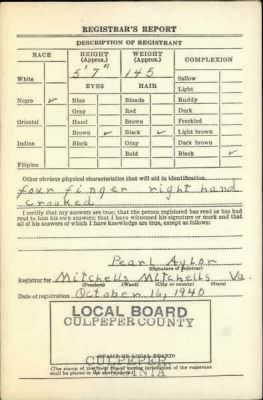 REGISTRAR'S REPORT
DESCRIPTION OF REGISTRANT
RACE HEIGHT (Approx.) WEIGHT (Approx.) COMPLEXION
5' 7" 145
White Sallow
EYES HAIR Light
Negro ✓ Blue Blonde Ruddy
Gray Red Dark
Oriental Hazel Brown Freckled
Brown ✓ Black ✓ Light brown
Indian Black Gray Dark brown
Bald Black ✓
Filipino
Other obvious physical characteristics that will aid in identification
four finger right hand
crooked
I certify that my answers are true; that the person registered has read or has had
read to him his own answers; that I have witnessed his signature or mark and that
all of his answers of which I have knowledge are true, except as follows:
Pearl Aylor
(Signature of registrar)
Registrar for Mitchells Mitchells Va.
(Precinct) (Ward) (City or county) (State)
Date of registration October 16, 1940
LOCAL BOARD
CULPEPER COUNTY
CULPEPER,
(STAMP OF LOCAL BOARD)
(The stamp of the Local Board having jurisdiction of the registrant
shall be placed in the above space.)